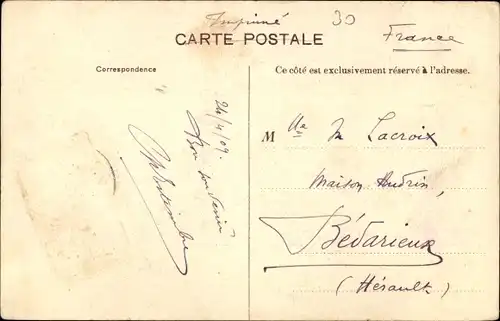 Imprimé 30
France
CARTE POSTALE
Correspondence
Ce côté est exclusivement réservé à l'adresse.
24/4/09.
Bon souvenir
Mlle M Lacroix
Maison Audrin,
Bédarieux
(Hérault)